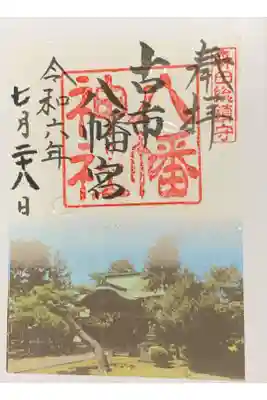 田総鎮守
奉拝
八幡
神社
古市
八幡宮
令和六年
七月二十八日